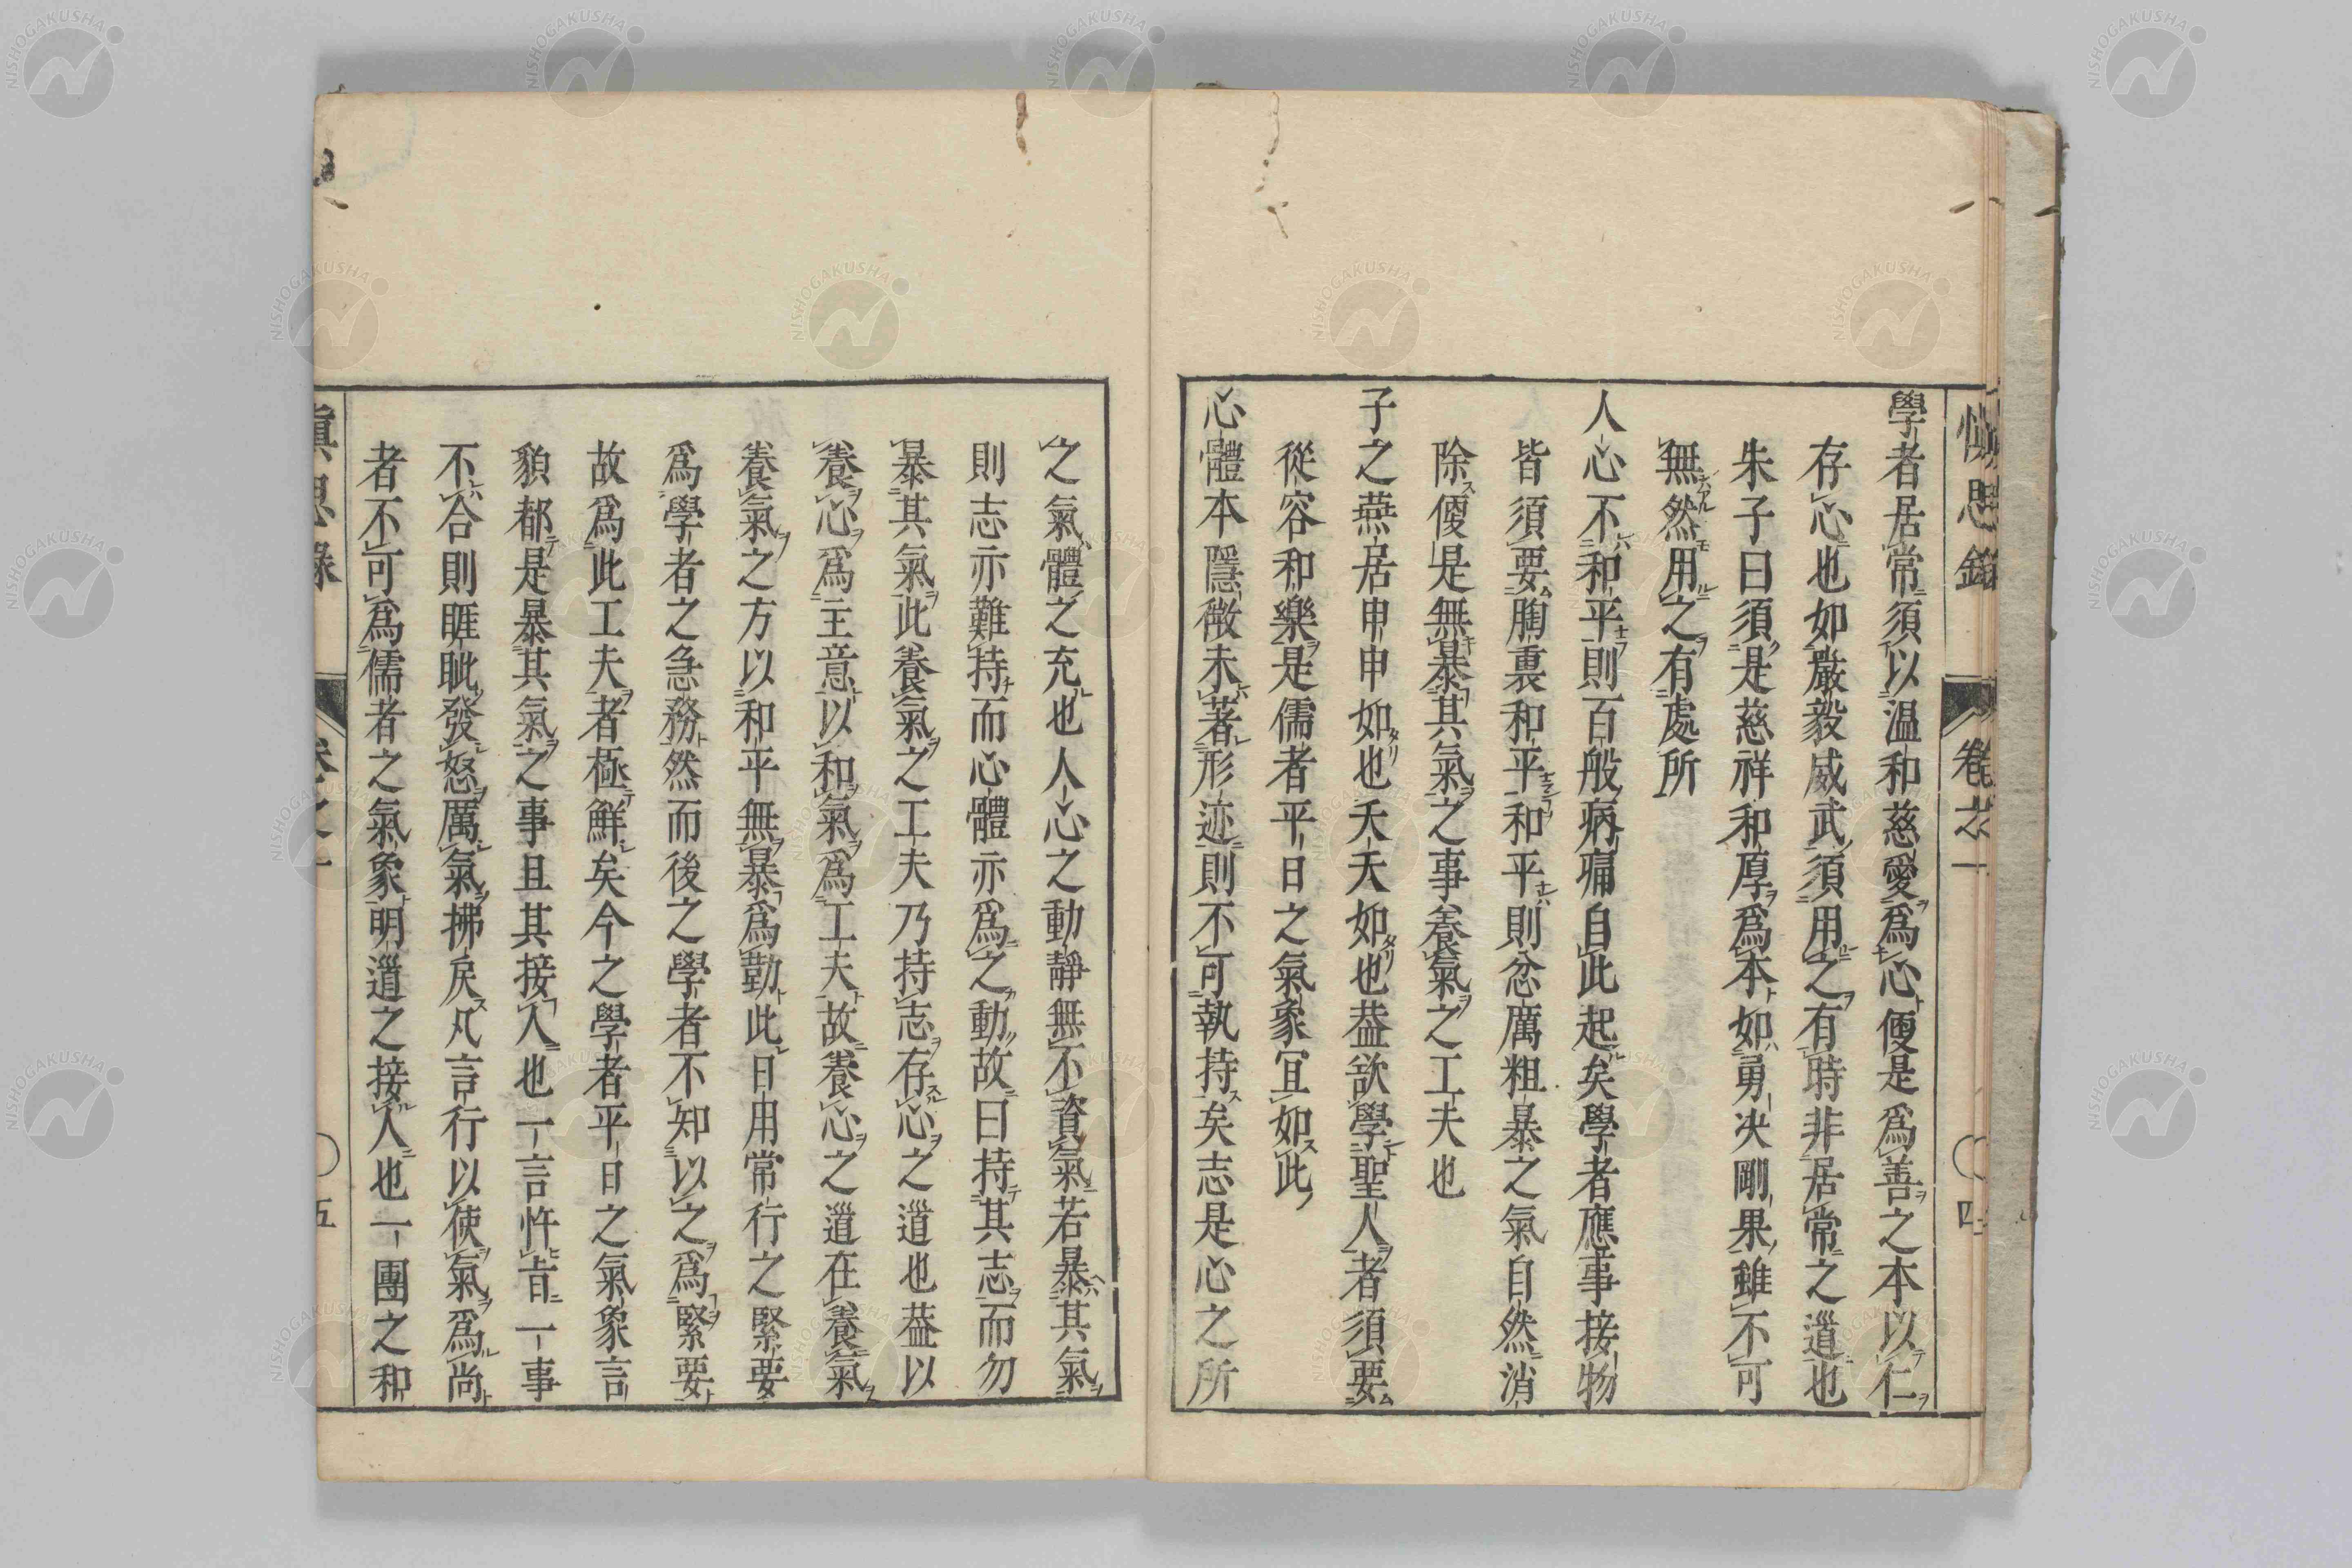 愼思錄 卷之一 四
學者居常須以温和慈愛爲心便是爲善之本以仁
存心也如嚴毅威武須用之有時非居常之道也
朱子曰須是慈祥和厚爲本如勇决剛果雖不可
無然用之有處所
人心不和平則百般病痛自此起矣學者應事接物
皆須要胸裏和平和平則忿厲粗暴之氣自然消
除便是無暴其氣之事養氣之工夫也
子之燕居申申如也夭夭如也蓋欲學聖人者須要
從容和樂是儒者平日之氣象冝如此
心體本隱微未著形迹則不可執持矣志是心之所
之氣體之充也人心之動靜無不資氣若暴其氣
則志亦難持而心體亦爲之動故曰持其志而勿
暴其氣此養氣之工夫乃持志存心之道也蓋以
養心爲主意以和氣爲工夫故養心之道在養氣
養氣之方以和平無暴爲勤此日用常行之緊要
爲學者之急務然而後之學者不知以之爲緊要
故爲此工夫者極鮮矣今之學者平日之氣象言
貌都是暴其氣之事且其接人也一言忤旨一事
不合則睚眦發怒厲氣拂戾凡言行以使氣爲尚
者不可爲儒者之氣象明道之接人也一團之和
愼思錄 卷之一 五
NISHOGAKUSHA